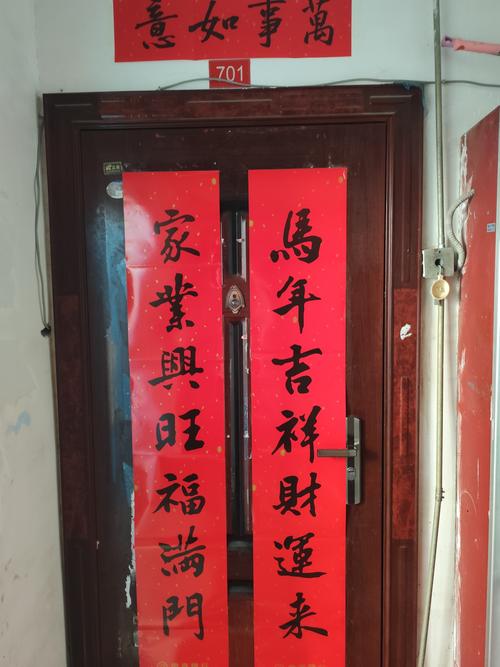 萬事如意
701
馬年吉祥財運来
家業興旺福满門